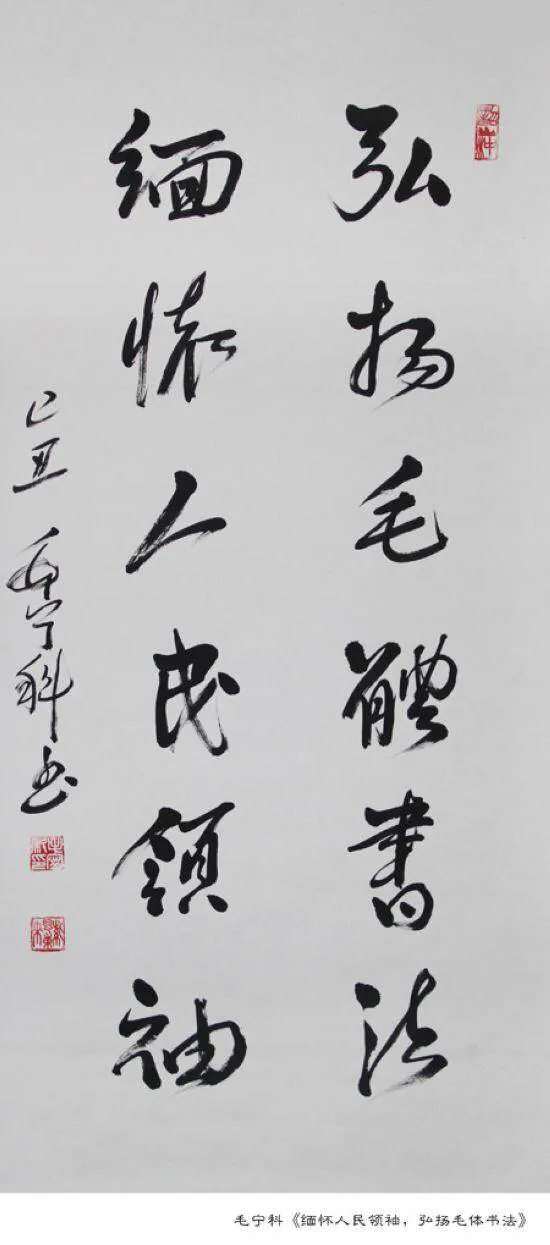 弘扬毛體書法
缅懷人民領袖
己丑 毛宁科书
毛宁科《缅怀人民领袖，弘扬毛体书法》